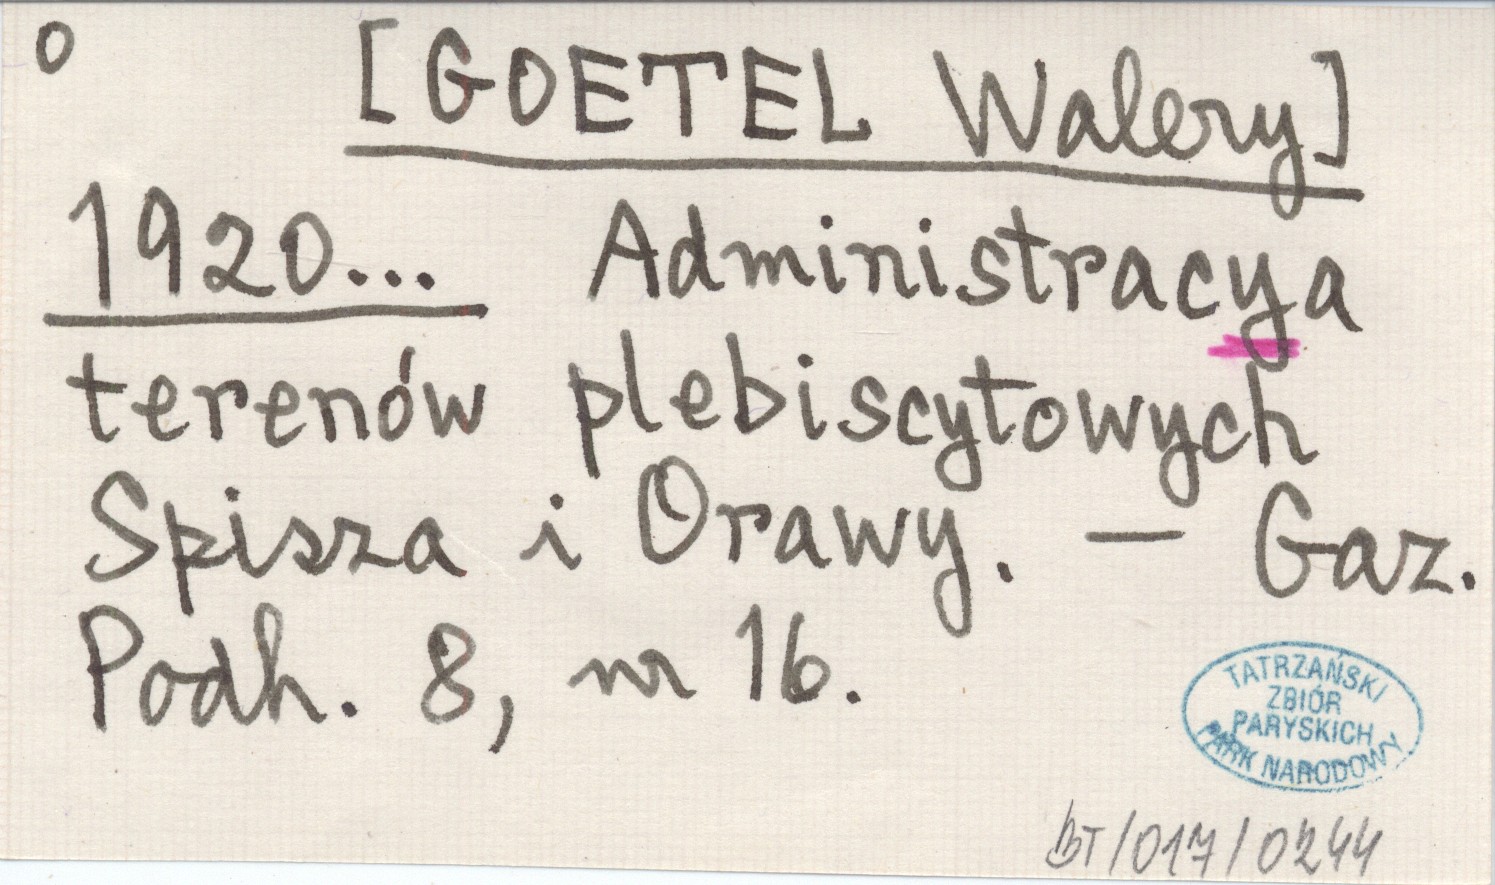 o
[GOETEL Walery]
1920... Administracya
terenów plebiscytowych
Spisza i Orawy. — Gaz.
Podh. 8, nr 16.
TATRZAŃSKI
ZBIÓR
PARYSKICH
PARK NARODOWY
BT/017/0244